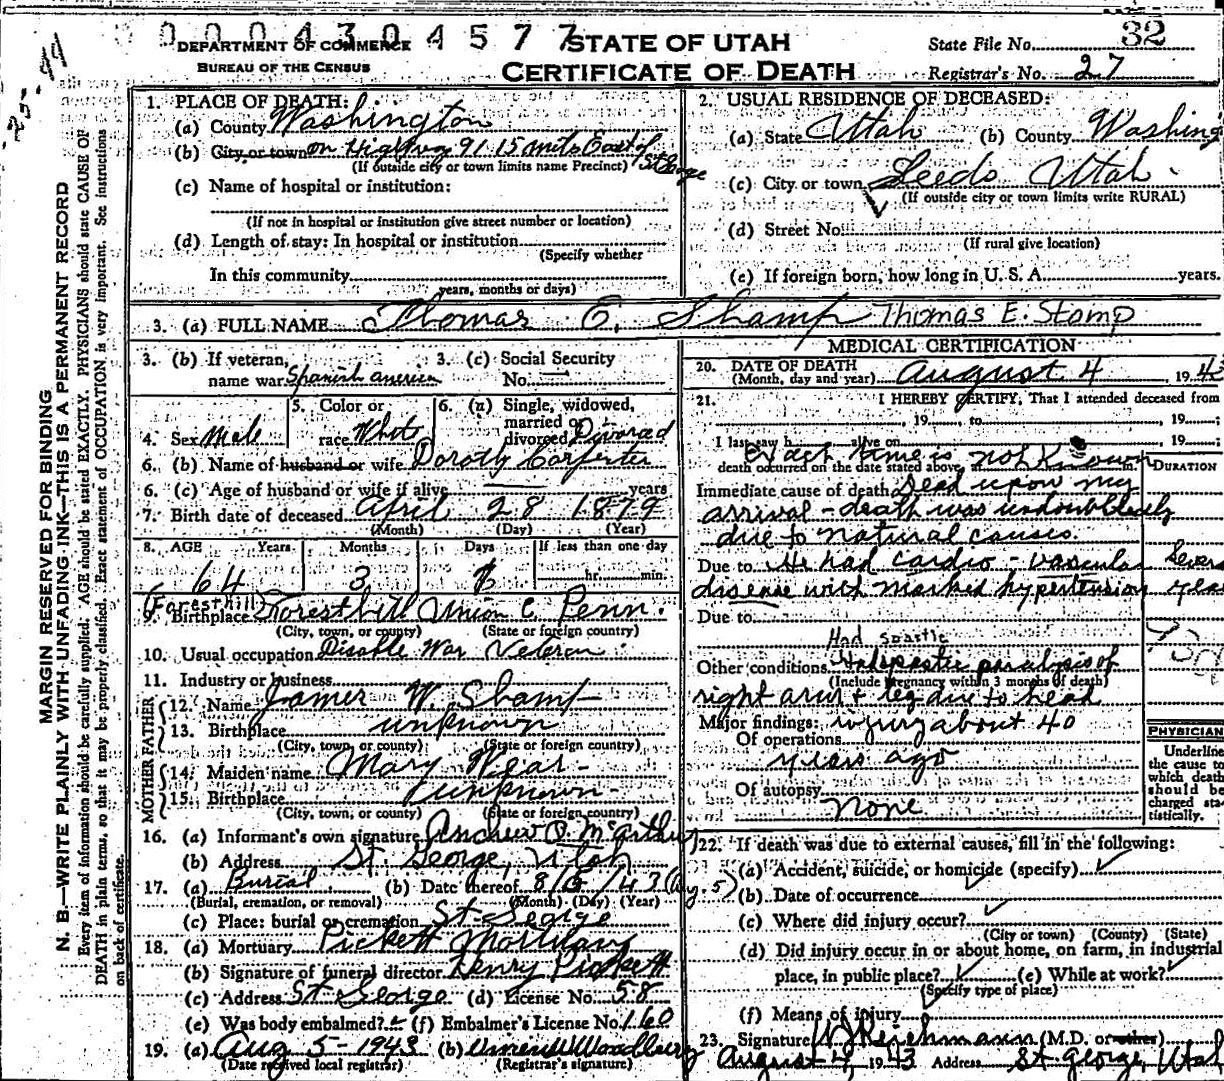 0004304577
32
DEPARTMENT OF COMMERCE
BUREAU OF THE CENSUS
STATE OF UTAH
CERTIFICATE OF DEATH
State File No.
Registrar's No. 27
MARGIN RESERVED FOR BINDING
N. B.—WRITE PLAINLY WITH UNFADING INK—THIS IS A PERMANENT RECORD
Every item of information should be carefully supplied. AGE should be stated EXACTLY. PHYSICIANS should state CAUSE OF
DEATH in plain terms, so that it may be properly classified. Exact statement of OCCUPATION is very important. See instructions
on back of certificate.
1. PLACE OF DEATH:
(a) County Washington
(b) City or town on Highway 91 15 mils East of St George
(If outside city or town limits name Precinct)
(c) Name of hospital or institution:
(If not in hospital or institution give street number or location)
(d) Length of stay: In hospital or institution
(Specify whether
In this community
years, months or days)
2. USUAL RESIDENCE OF DECEASED:
(a) State Utah (b) County Washing
(c) City or town Leeds Utah
(If outside city or town limits write RURAL)
(d) Street No.
(If rural give location)
(e) If foreign born, how long in U. S. A. years.
3. (a) FULL NAME Thomas E. Shamp Thomas E. Stomp
3. (b) If veteran, name war Spanish America
3. (c) Social Security No. —
4. Sex Male
5. Color or race White
6. (a) Single, widowed, married or divorced Divorced
6. (b) Name of husband or wife Dorothy Carpenter
6. (c) Age of husband or wife if alive years
7. Birth date of deceased April 28 1879
(Month) (Day) (Year)
8. AGE Years Months Days If less than one day
64 3 hr. min.
(Foresthill)
9. Birthplace Foresthill Union C Penn.
(City, town, or county) (State or foreign country)
10. Usual occupation Disable War Veteran
11. Industry or business
MOTHER FATHER
12. Name James W. Shamp
13. Birthplace unknown
(City, town, or county) (State or foreign country)
14. Maiden name Mary Wear
15. Birthplace unknown
(City, town, or county) (State or foreign country)
16. (a) Informant's own signature Andrew O McArthur
(b) Address St. George, Utah
17. (a) Burial (b) Date thereof 8/5/43 (Aug. 5)
(Burial, cremation, or removal) (Month) (Day) (Year)
(c) Place: burial or cremation St. George
18. (a) Mortuary Pickett Mortuary
(b) Signature of funeral director Henry Pickett
(c) Address St George (d) License No. 58
(e) Was body embalmed? (f) Embalmer's License No. 160
19. (a) Aug 5-1943 (b) Woodbury
(Date received local registrar) (Registrar's signature)
MEDICAL CERTIFICATION
20. DATE OF DEATH
(Month, day and year) August 4, 1943
21. I HEREBY CERTIFY, That I attended deceased from
, 19 , to , 19 ;
I last saw h alive on , 19 ;
Exact time is not known
death occurred on the date stated above, at m.
DURATION
Immediate cause of death Dead upon my
arrival - death was undoubtedly
due to natural causes.
Due to He had cardio-vascular Sever
disease with marked hypertension yea
Due to
Had spastic
Other conditions paralysis of
(Include pregnancy within 3 months of death)
right arm + leg due to head
Major findings: injury about 40
Of operations
years ago
Of autopsy
none
PHYSICIAN
Underline
the cause to
which death
should be
charged sta-
tistically.
22. If death was due to external causes, fill in the following:
(a) Accident, suicide, or homicide (specify)
(b) Date of occurrence
(c) Where did injury occur?
(City or town) (County) (State)
(d) Did injury occur in or about home, on farm, in industrial
place, in public place? (e) While at work?
(Specify type of place)
(f) Means of injury
23. Signature W J Reichmann (M.D. or other)
August 4, 1943 Address St George, Utah